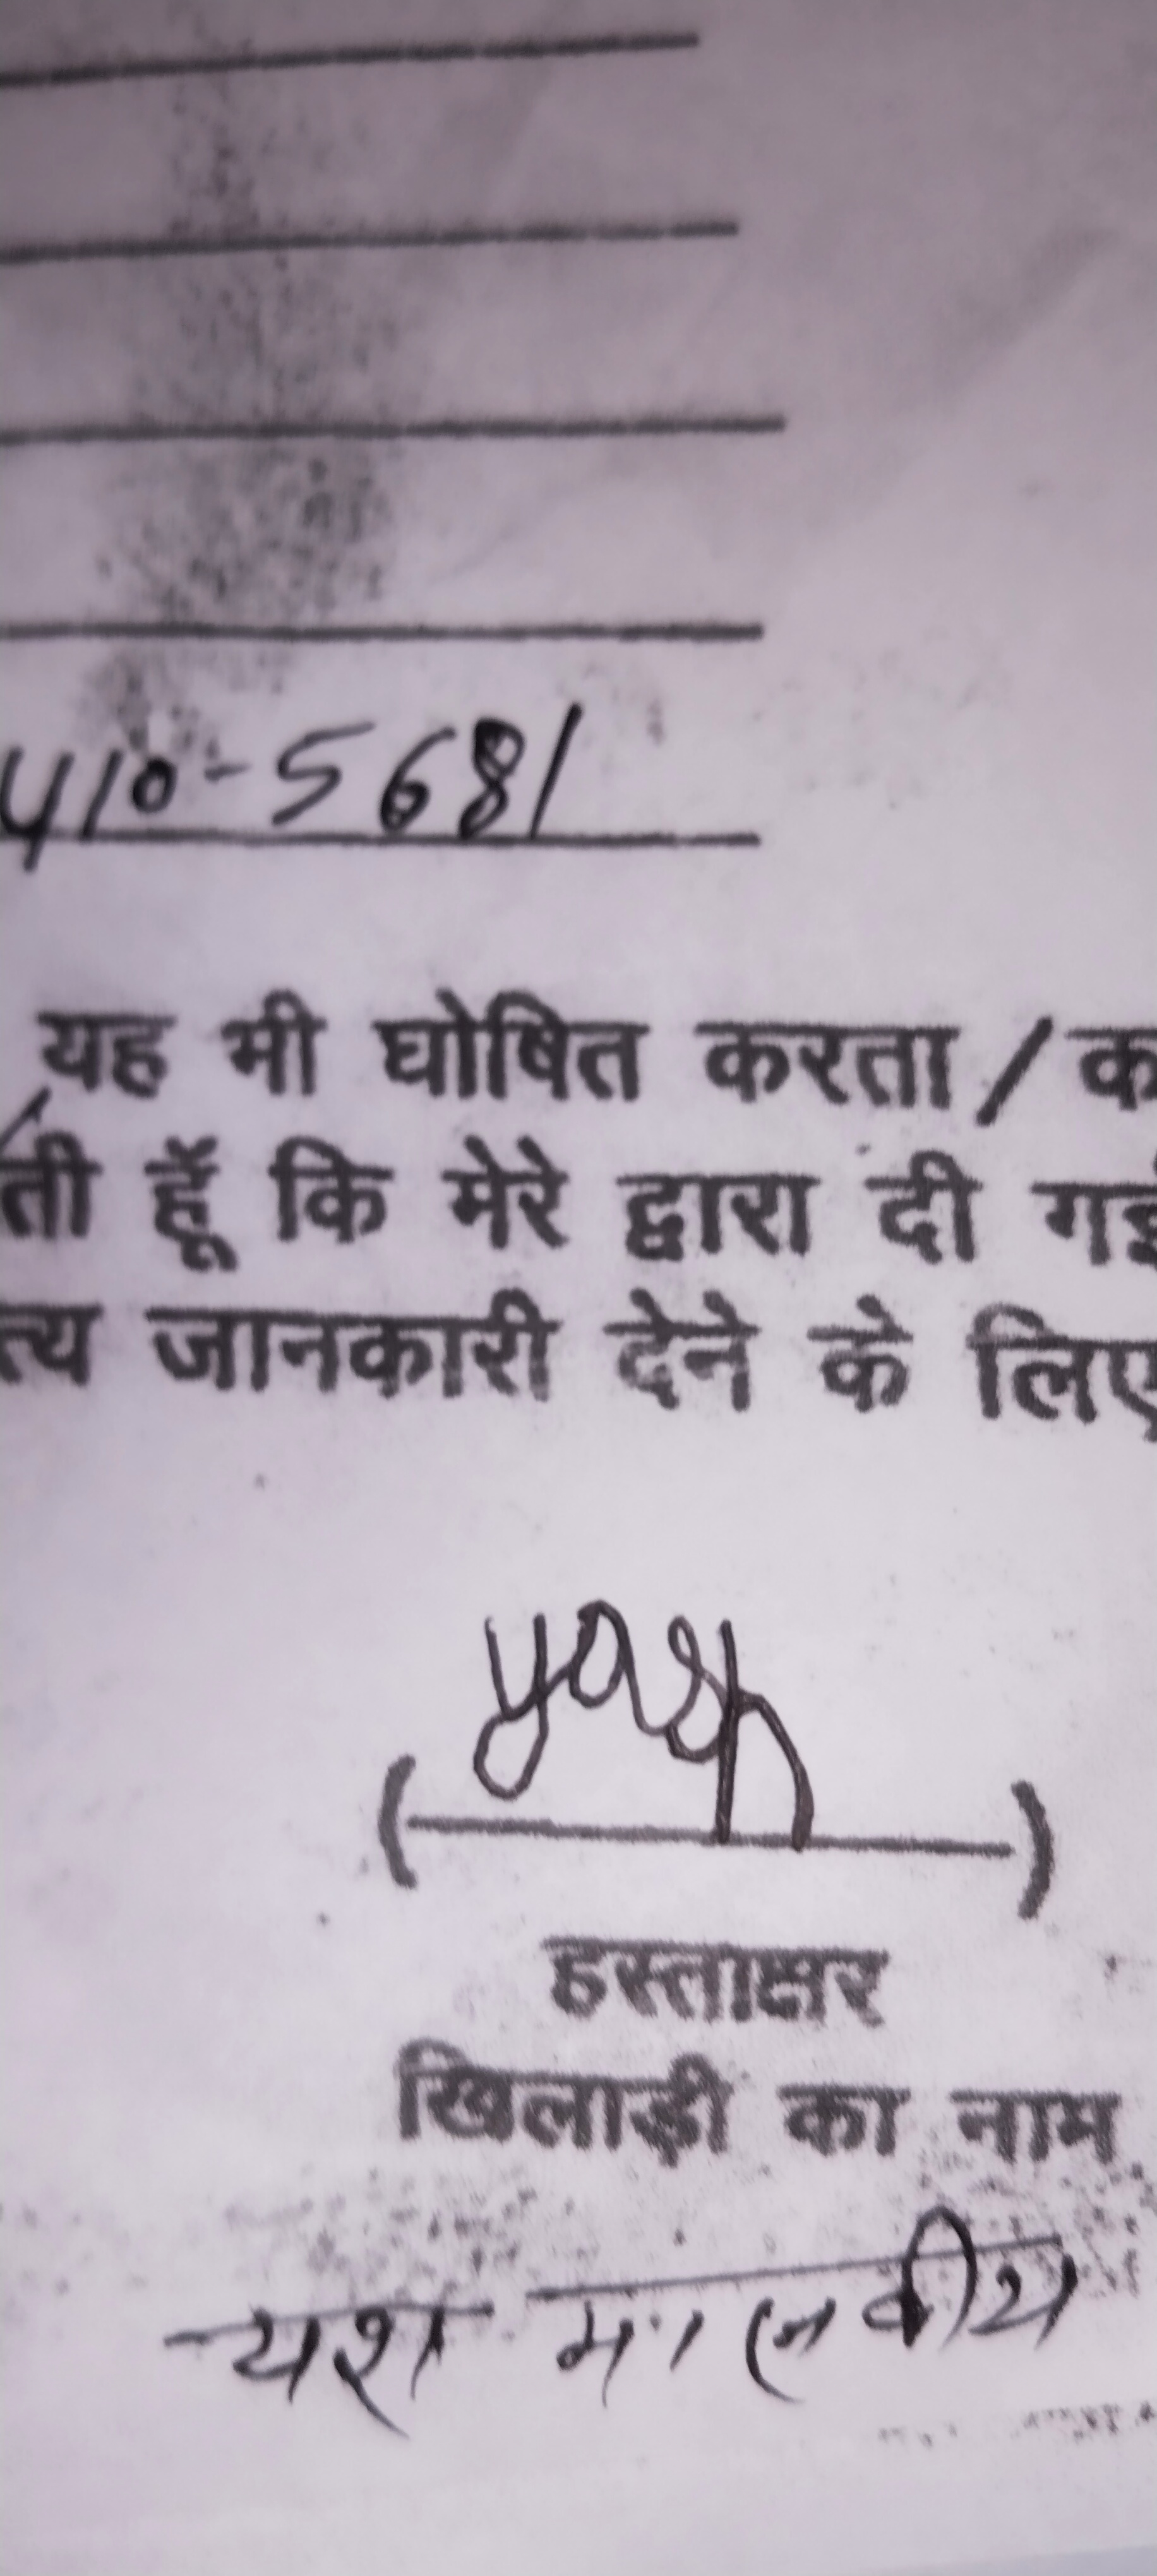 410-5681
यह भी घोषित करता / क
ती हूँ कि मेरे द्वारा दी गई
त्य जानकारी देने के लिए
( yash )
हस्ताक्षर
खिलाड़ी का नाम
यश मालवीय